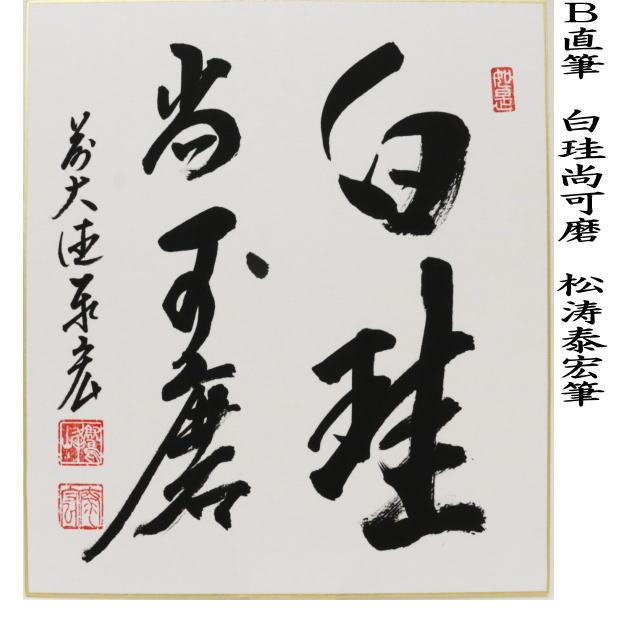 B直筆　白珪尚可磨　松涛泰宏筆
如是
白珪
尚可磨
前大徳泰宏